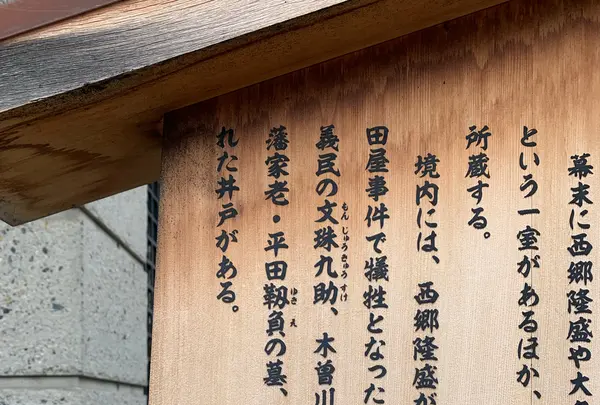 幕末に西郷隆盛や大
という一室があるほか、
所蔵する。
境内には、西郷隆盛が
田屋事件で犠牲となった
義民の文珠九助、木曽川
もんじゅうきゅうすけ
藩家老・平田靱負の墓、
ゆきえ
れた井戸がある。